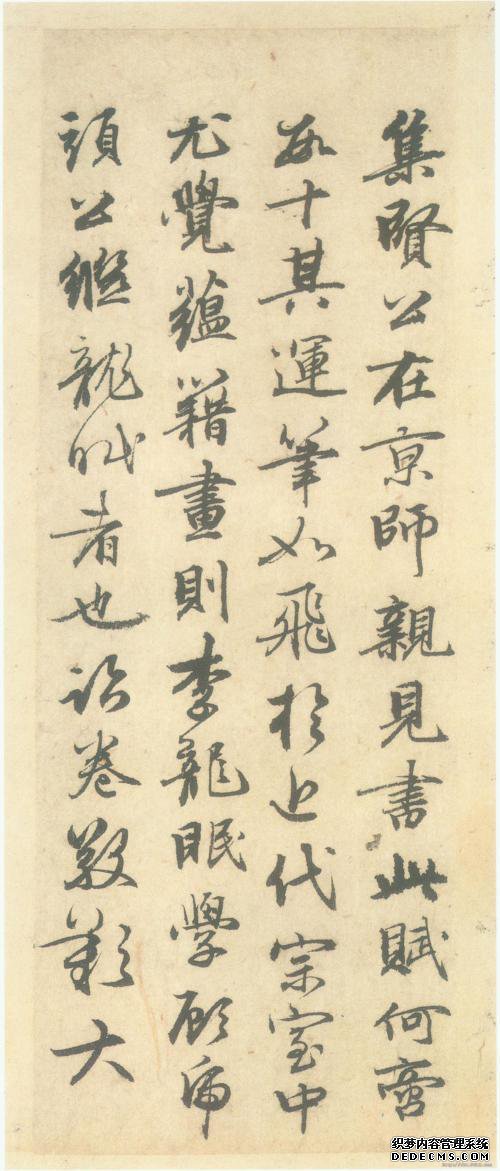 集賢公在京師親見書此賦何啻
數十其運筆如飛於近代宗室中
尤覺蘊籍畫則李龍眠學顧虎
頭公繼龍眠者也卷敬歎大
织梦内容管理系统
DEDECMS.COM